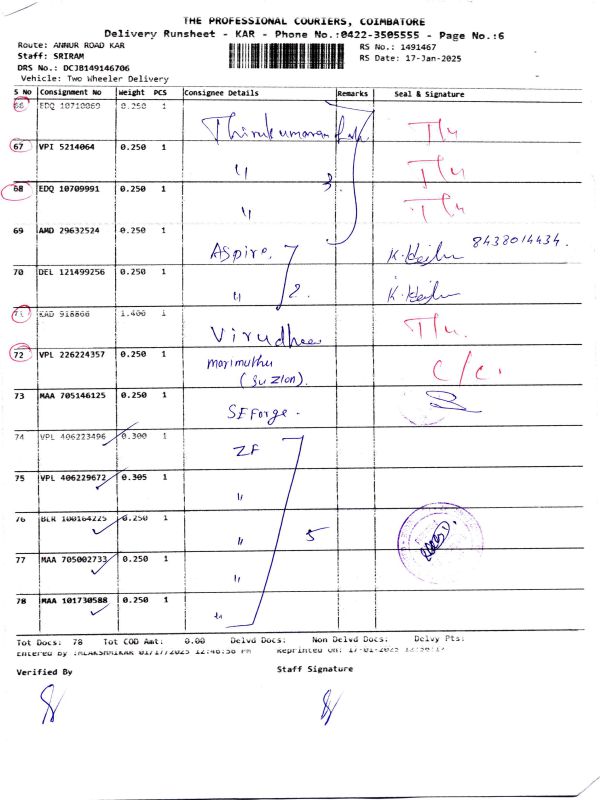 THE PROFESSIONAL COURIERS, COIMBATORE
Delivery Runsheet - KAR - Phone No.:0422-3505555 - Page No.:6
Route: ANNUR ROAD KAR
RS No.: 1491467
Staff: SRIRAM
RS Date: 17-Jan-2025
DRS No.: DCJB149146706
Vehicle: Two Wheeler Delivery
S No Consignment No Weight PCS Consignee Details Remarks Seal & Signature
66 EDQ 10710069 0.250 1 Thirukumaran Tlu
67 VPI 5214064 0.250 1 " 3. Tlu
68 EDQ 10709991 0.250 1 " Tlu
69 AMD 29632524 0.250 1 Aspire, 8438014434.
70 DEL 121499256 0.250 1 " 2.
71 KAD 918866 1.400 1 Virudhee Tlu.
72 VPL 226224357 0.250 1 marimuthu (Suzlon). C/C.
73 MAA 705146125 0.250 1 SEForge.
74 VPL 406223496 0.300 1 ZF
75 VPL 406229672 0.305 1 "
76 BLR 100164225 0.250 1 " 5
77 MAA 705002733 0.250 1 "
78 MAA 101730588 0.250 1 "
Tot Docs: 78 Tot COD Amt: 0.00 Delvd Docs: Non Delvd Docs: Delvy Pts:
Entered By :RLAKSHMIKAR 01/17/2025 12:46:58 PM Reprinted On: 17-01-2025
Verified By
Staff Signature